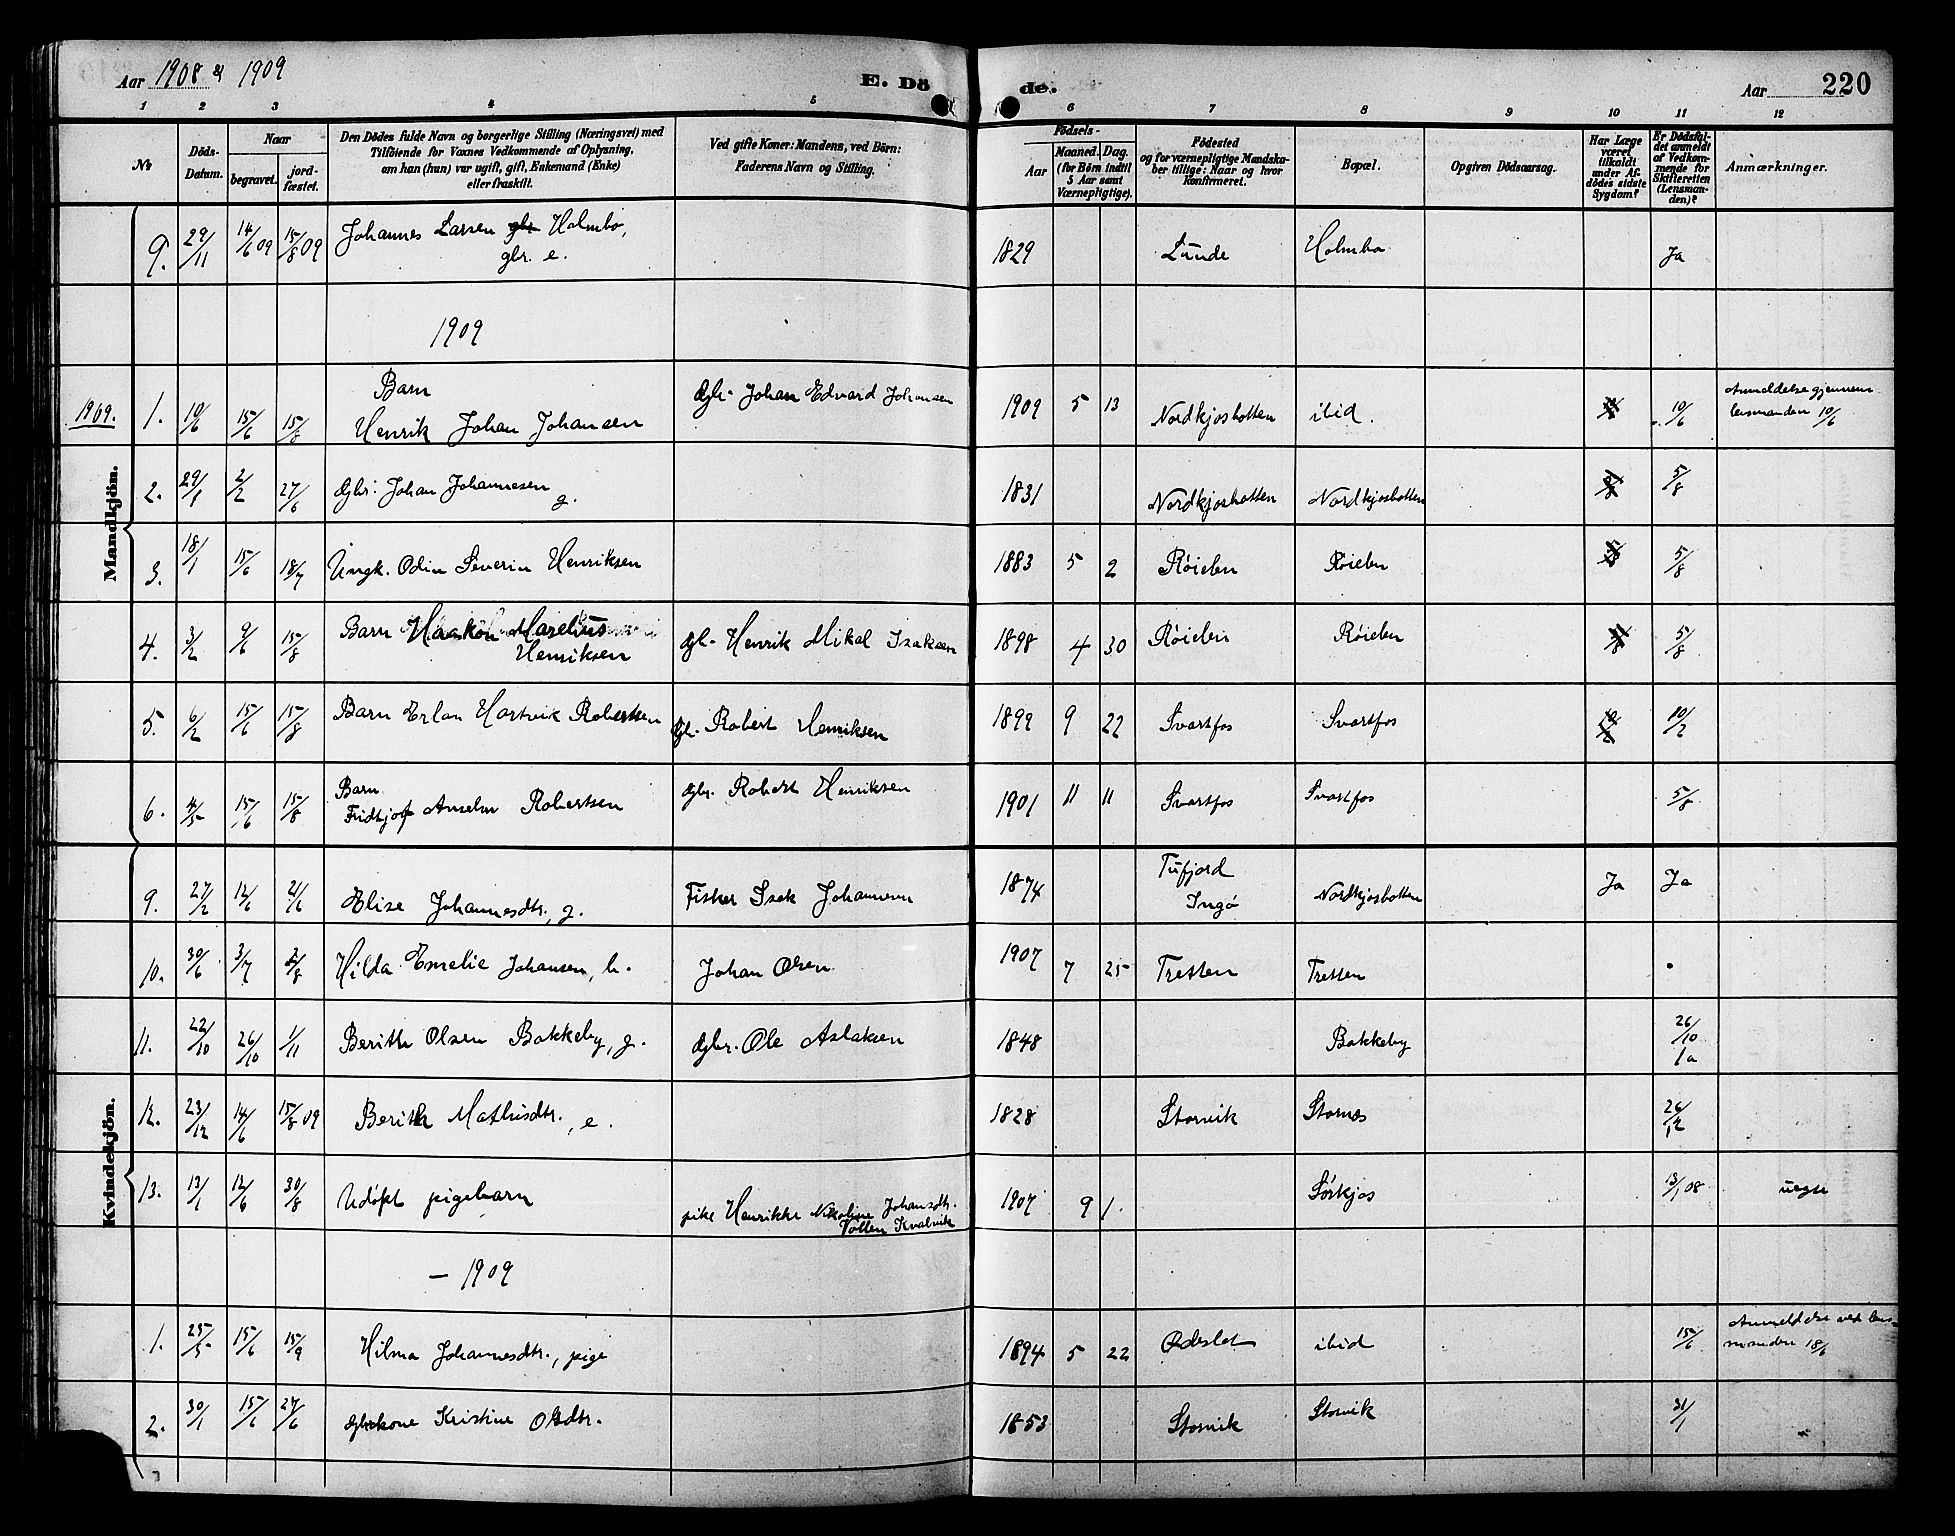 Aar 1908 & 1909 E. Dö de. Aar 220
1 2 3 4 5 6 7 8 9 10 11 12
No
Döds-Datum.
Naar
begravet.
jordfæstet.
Den Dödes fulde Navn og borgerlige Stilling (Næringsvei) med
Tilföiende for Voxnes Vedkommende af Oplysning,
om han (hun) var ugift, gift, Enkemand (Enke)
eller fraskilt.
Ved gifte Koner: Mandens, ved Börn:
Faderens Navn og Stilling.
Födsels-
Aar
Maaned. Dag.
(for Börn indtil
5 Aar samt
Værnepligtige).
Födested
og for værnepligtige Mandska-
ber tillige: Naar og hvor
Konfirmeret.
Bopæl.
Opgiven Dödsaarsag.
Har Læge
været
tilkaldt
under Af-
dödes sidste
Sygdom?
Er Dödsfal-
det anmeldt
af Vedkom-
mende for
Skifteretten
(Lensman-
den)?
Anmærkninger.
9. 29/11 14/6 09 15/8 09 Johannes Larsen gbr Holmbo, 1829 Lunde Holmbo Ja
gbr. e.
1909
Mandkjön.
1909. 1. 10/6 15/6 15/8 Barn gbr. Johan Edvard Johansen 1909 5 13 Nordkjosbotten ibid. 10/6 Anmeldelse gjennem
Henrik Johan Johansen lensmanden 10/6
2. 29/1 2/2 27/6 gbr. Johan Johannesen g. 1831 Nordkjosbotten Nordkjosbotten 5/8
3. 18/1 15/6 18/7 Ungk. Odin Severin Henriksen 1883 5 2 Røielen Røielen 5/8
4. 3/2 9/6 15/8 Barn Haakon Marelius gbr. Henrik Mikal Isaksen 1898 4 30 Røielen Røielen 5/8
Henriksen
5. 6/2 15/6 15/8 Barn Erlan Hartvik Robertsen gbr. Robert Henriksen 1899 9 22 Svartfos Svartfos 10/2
6. 4/5 15/6 15/8 Barn gbr. Robert Henriksen 1901 11 11 Svartfos Svartfos 5/8
Fridtjof Anselm Robertsen
Kvindekjön.
9. 27/2 12/6 21/6 Elise Johannesdtr., g. Fisker Isak Johannesen 1874 Tufjord Nordkjosbotten Ja Ja
Ingö
10. 30/6 3/7 2/8 Hilda Emelie Johansen, b. Johan Olsen 1907 7 25 Tretten Tretten
11. 22/10 26/10 1/11 Berith Olsen Bakkeby, g. gbr. Ole Aslaksen 1848 Bakkeby 26/10
Ja
12. 23/12 14/6 15/8 09 Berith Mathisdtr., e. 1828 Storvik Stornes 26/12
13. 13/1 12/6 30/8 Udöpt pigebarn pike Henrikke Nikoline Johansdtr. 1907 9 1. Sörkjos 13/1 08 uegte
Vollen Kvalvik
– 1909
1. 25/5 15/6 15/9 Hilma Johannesdtr., pige 1894 5 22 Ødeslet ibid 15/6 Anmeldelse ved lens-
manden 18/6
2. 30/1 15/6 27/6 gbrkone Kristine Olsdtr. 1853 Storvik Storvik 31/1